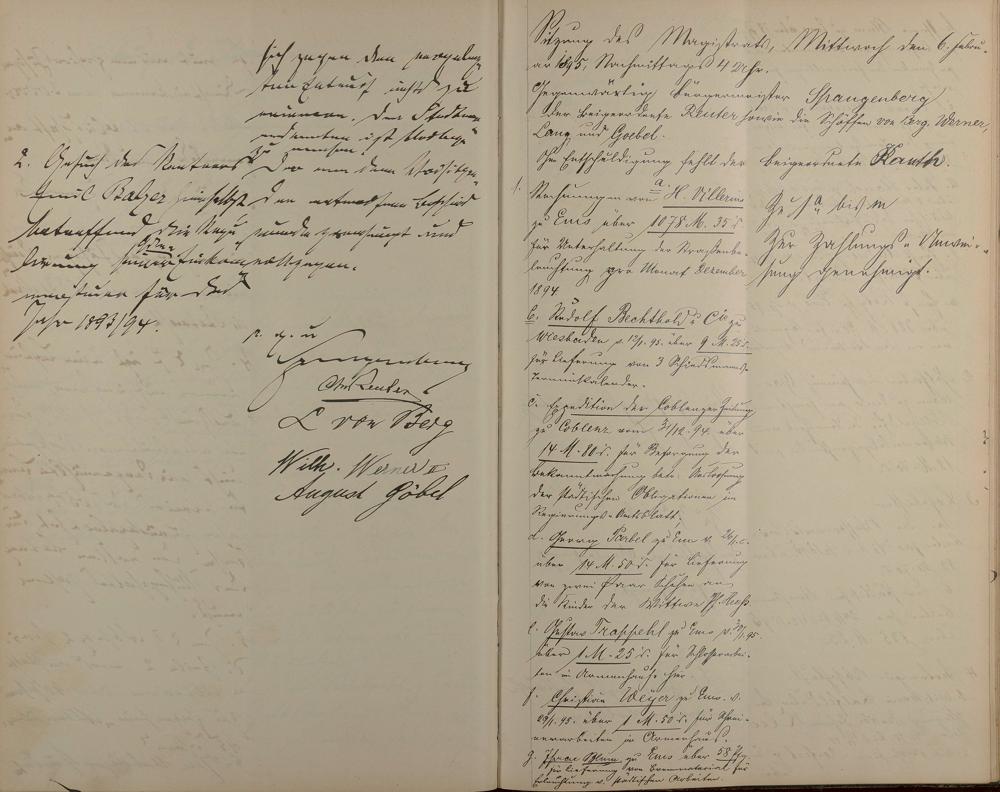 sich gegen den vorgeleg-
ten Entwurf nichts zu
erinnern. Der Stadtvor-
ist Vorlage
zu machen.
2. Gesuch des Rentners
Emil Balzer hierselbst
betreffend die
seiner Einkommen-
steuer für das
Jahr 1893/94.
Der von dem Vorsitzen-
den entworfene Bescheid
wurde genehmigt und
vollzogen.
v. g. u.
Spangenberg
Chr. Reuter
L von Berg
Wilh. Werner II
August Göbel
Sitzung des Magistrats, Mittwoch den 6. Febru-
ar 1895, Nachmittags 4 Uhr.
Gegenwärtig Bürgermeister Spangenberg
der Beigeordnete Reuter sowie die Schöffen von Berg, Werner,
Lang und Goebel.
Ohne Entschuldigung fehlt der Beigeordnete Kauth.
1.
Rechnungen von a. H. Villerius
zu Ems über 1078 M. 35 d.
für Unterhaltung der Straßenbe-
leuchtung pro Monat Dezember
1894
b. Rudolf Bechthold u. Cie zu
Wiesbaden v. /1. 95. über 9 M. 25 d.
für Lieferung von 3 Schiedsmanns-
Terminkalender.
c. Expedition der Coblenzer Zeitung
zu Coblenz vom 31/12. 94. über
14 M. 80 d. für Besorgung der
Bekanntmachung betr. Verlosung
der städtischen Obligationen im
Regierungs-Amtsblatt,
d. Georg zu Ems v. 26/1. c.
über 14 M. 50 d. für Lieferung
von zwei Paar Schuhen an
die Kinder der Wittwe
e. Gustav Trappehl zu Ems v. /1. 95.
über 1 M. 25 d. für Schlosserarbei-
ten im Armenhause hier.
f. Christian Weyer zu Ems. v.
29/1. 95. über 1 M. 50 d. für Schrei-
nerarbeiten im Armenhaus.
g. Isaac Blum zu Ems über 58 Pfg
für Lieferung von Brennmaterial für
Erleuchtung v. städtischen Arbeiten.
Zu 1 a bis m
Zur Zahlungs-Anwei-
sung genehmigt.